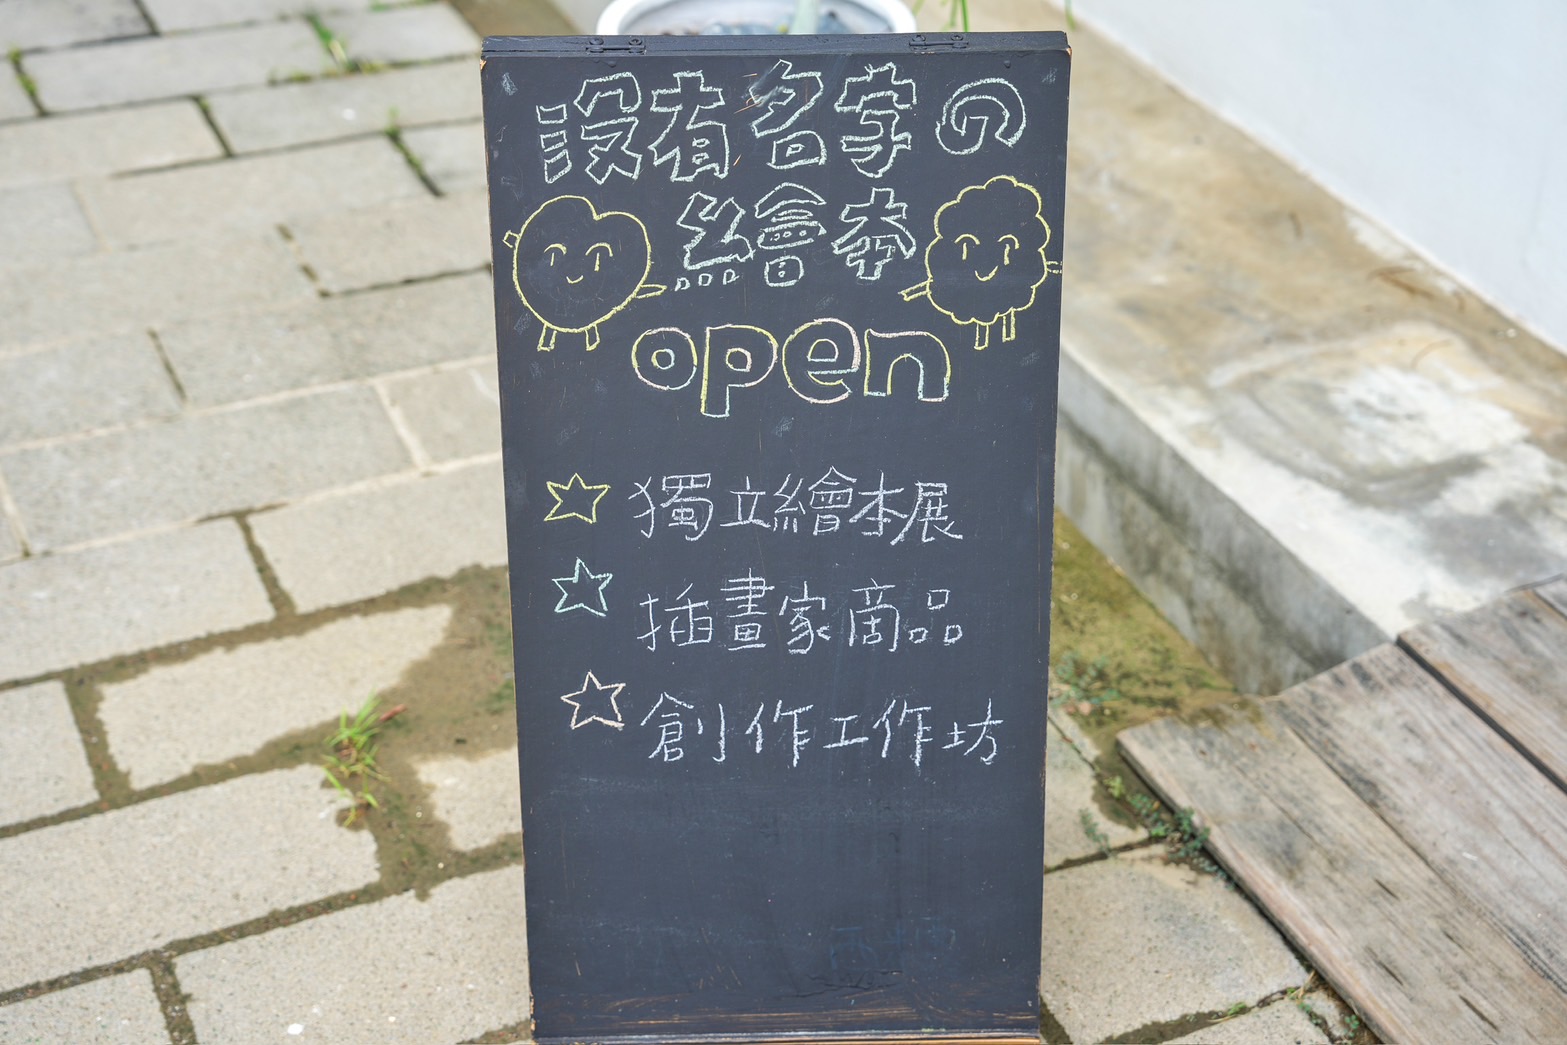 沒有名字の
繪本
open
獨立繪本展
插畫家商品
創作工作坊